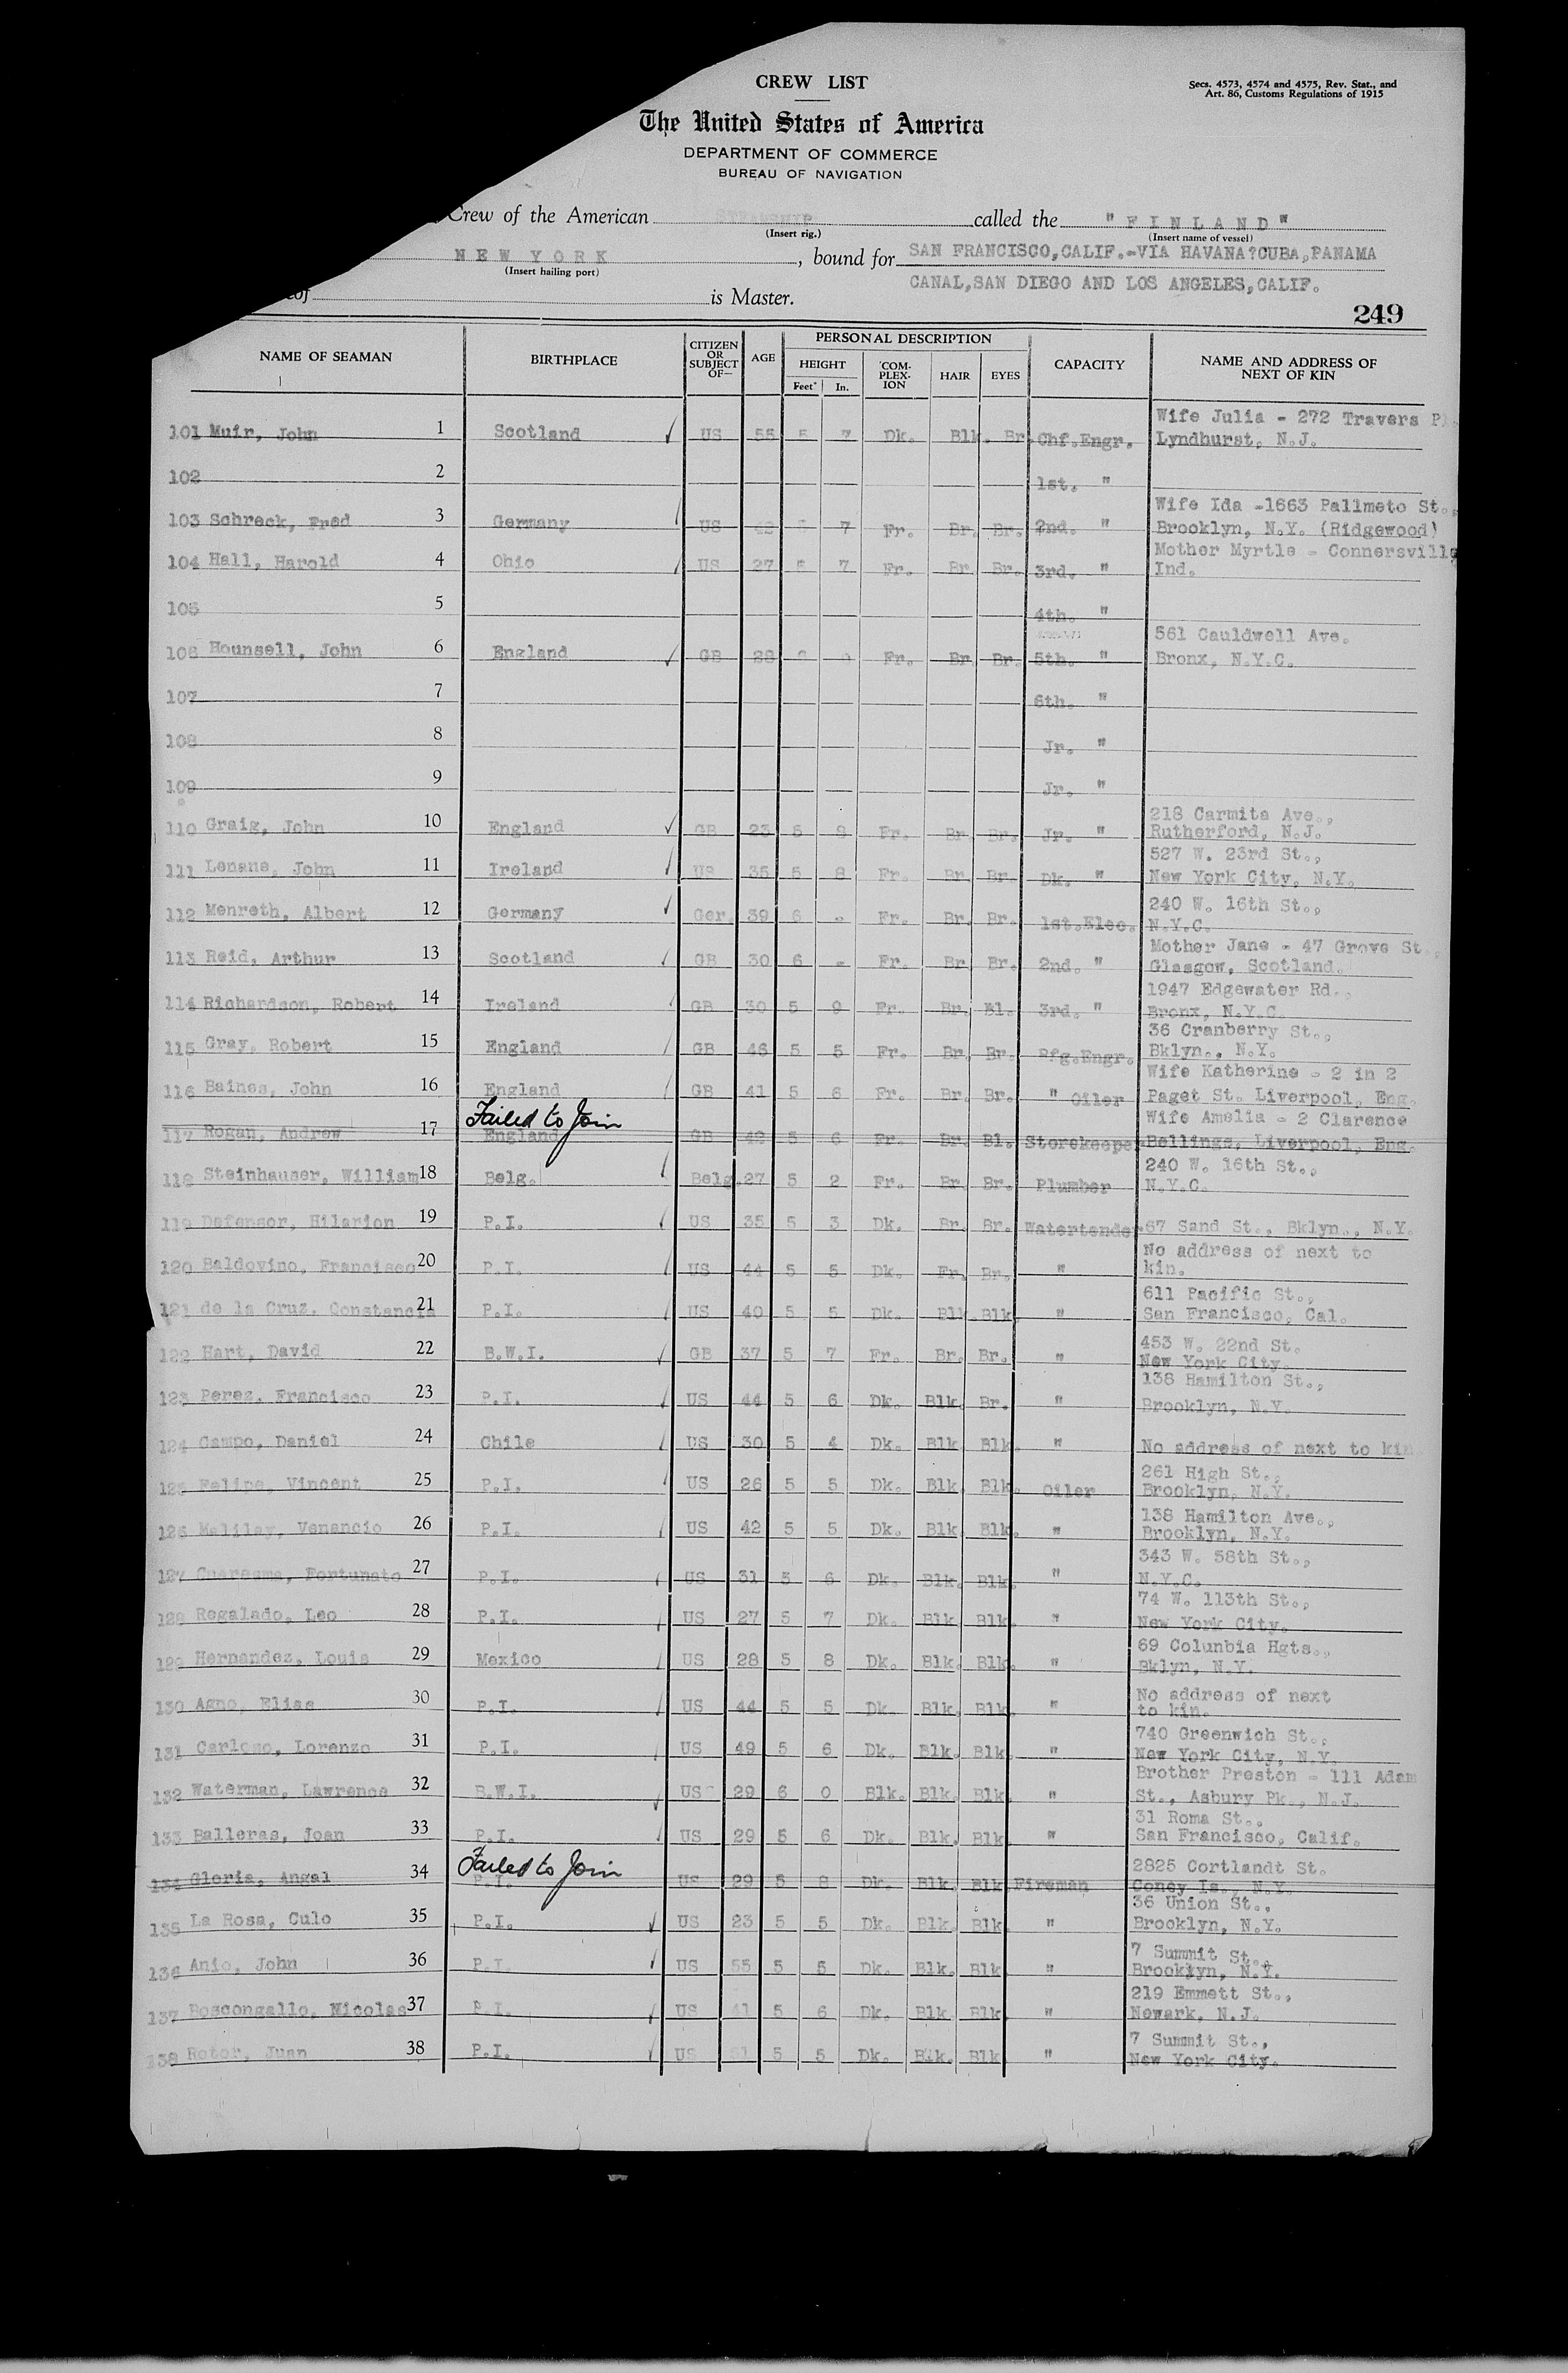 CREW LIST
Secs. 4573, 4574 and 4575, Rev. Stat., and
Art. 86, Customs Regulations of 1915
The United States of America
DEPARTMENT OF COMMERCE
BUREAU OF NAVIGATION
Crew of the American STEAMSHIP called the "FINLAND"
(Insert rig.) (Insert name of vessel)
NEW YORK, bound for SAN FRANCISCO,CALIF.-VIA HAVANA?CUBA,PANAMA
(Insert hailing port)
CANAL,SAN DIEGO AND LOS ANGELES,CALIF.
of is Master.
249
NAME OF SEAMAN BIRTHPLACE CITIZEN OR SUBJECT OF— AGE PERSONAL DESCRIPTION CAPACITY NAME AND ADDRESS OF NEXT OF KIN
HEIGHT COM-PLEX-ION HAIR EYES
Feet In.
Wife Julia - 272 Travers Pl.
101 Muir, John 1 Scotland ✓ US 55 5 7 Dk. Blk. Br. Chf.Engr. Lyndhurst, N.J.
102 2 1st. "
Wife Ida -1663 Pallmeto St.,
103 Schreck, Fred 3 Germany US 42 5 7 Fr. Br. Br. 2nd. " Brooklyn, N.Y. (Ridgewood)
Mother Myrtle - Connersville
104 Hall, Harold 4 Ohio US 27 5 7 Fr. Br. Br. 3rd. " Ind.
105 5 4th. "
561 Cauldwell Ave.
106 Hounsell, John 6 England ✓ GB 28 Fr. Br. Br. 5th. " Bronx, N.Y.C.
107 7 6th. "
108 8 Jr. "
109 9 Jr. "
218 Carmita Ave.,
110 Graig, John 10 England ✓ GB 23 5 9 Fr. Br. Br. Jr. " Rutherford, N.J.
527 W. 23rd St.,
111 Lenane, John 11 Ireland ✓ US 35 5 8 Fr. Br. Br. Dk. " New York City, N.Y.
240 W. 16th St.,
112 Menreth, Albert 12 Germany ✓ Ger. 39 6 - Fr. Br. Br. 1st.Elec. N.Y.C.
Mother Jane - 47 Grove St.,
113 Reid, Arthur 13 Scotland ✓ GB 30 6 - Fr. Br. Br. 2nd. " Glasgow, Scotland.
1947 Edgewater Rd.,
114 Richardson, Robert 14 Ireland GB 30 5 9 Fr. Br. Bl. 3rd. " Bronx, N.Y.C.
36 Cranberry St.,
115 Gray, Robert 15 England GB 46 5 5 Fr. Br. Br. Rfg.Engr. Bklyn., N.Y.
Wife Katherine - 2 in 2
116 Baines, John 16 England GB 41 5 6 Fr. Br. Br. " Oiler Paget St. Liverpool, Eng.
Failed to Join
Wife Amelia - 2 Clarence
117 Rogan, Andrew 17 England GB 49 5 6 Fr. Br. Bl. Storekeeper Bellings, Liverpool, Eng.
240 W. 16th St.,
118 Steinhauser, William 18 Belg. Belg. 27 5 2 Fr. Br. Br. Plumber N.Y.C.
119 Defensor, Hilarion 19 P.I. ✓ US 35 5 3 Dk. Br. Br. Watertender 67 Sand St., Bklyn., N.Y.
No address of next to
120 Baldovino, Francisco 20 P.I. US 44 5 5 Dk. Fr. Br. " kin.
611 Pacific St.,
121 de la Cruz, Constancia 21 P.I. US 40 5 5 Dk. Blk. Blk. " San Francisco, Cal.
453 W. 22nd St.
122 Hart, David 22 B.W.I. ✓ GB 37 5 7 Fr. Br. Br. " New York City.
138 Hamilton St.,
123 Perez, Francisco 23 P.I. ✓ US 44 5 6 Dk. Blk. Br. " Brooklyn, N.Y.
124 Campo, Daniel 24 Chile US 30 5 4 Dk. Blk. Blk. " No address of next to kin
261 High St.,
125 Felipe, Vincent 25 P.I. US 26 5 5 Dk. Blk. Blk. Oiler Brooklyn, N.Y.
138 Hamilton Ave.,
126 Malilay, Venancio 26 P.I. US 42 5 5 Dk. Blk. Blk. " Brooklyn, N.Y.
343 W. 58th St.,
127 Cuaresma, Fortunato 27 P.I. US 31 5 6 Dk. Blk. Blk. " N.Y.C.
74 W. 113th St.,
128 Regalado, Leo 28 P.I. US 27 5 7 Dk. Blk. Blk. " New York City.
69 Colunbia Hgts.,
129 Hernandez, Louis 29 Mexico US 28 5 8 Dk. Blk. Blk. " Bklyn, N.Y.
No address of next
130 Agno, Elias 30 P.I. US 44 5 5 Dk. Blk. Blk. " to kin.
740 Greenwich St.,
131 Carloso, Lorenzo 31 P.I. US 49 5 6 Dk. Blk. Blk. " New York City, N.Y.
Brother Preston - 111 Adam
132 Waterman, Lawrence 32 B.W.I. ✓ US 29 6 0 Blk. Blk. Blk. " St., Asbury Pk., N.J.
31 Roma St.,
133 Balleras, Joan 33 P.I. US 29 5 6 Dk. Blk. Blk. " San Francisco, Calif.
Failed to Join
2825 Cortlandt St.
134 Gloria, Angal 34 P.I. US 29 5 8 Dk. Blk. Blk. Fireman Coney Is., N.Y.
36 Union St.,
135 La Rosa, Culo 35 P.I. ✓ US 23 5 5 Dk. Blk. Blk. " Brooklyn, N.Y.
7 Summit St.,
136 Anio, John 36 P.I. ✓ US 55 5 5 Dk. Blk. Blk " Brooklyn, N.Y.
219 Emmett St.,
137 Boscongallo, Nicolas 37 P.I. ✓ US 41 5 6 Dk. Blk. Blk. " Newark, N.J.
7 Summit St.,
138 Rotor, Juan 38 P.I. US 5 5 Dk. Blk. Blk " New York City.